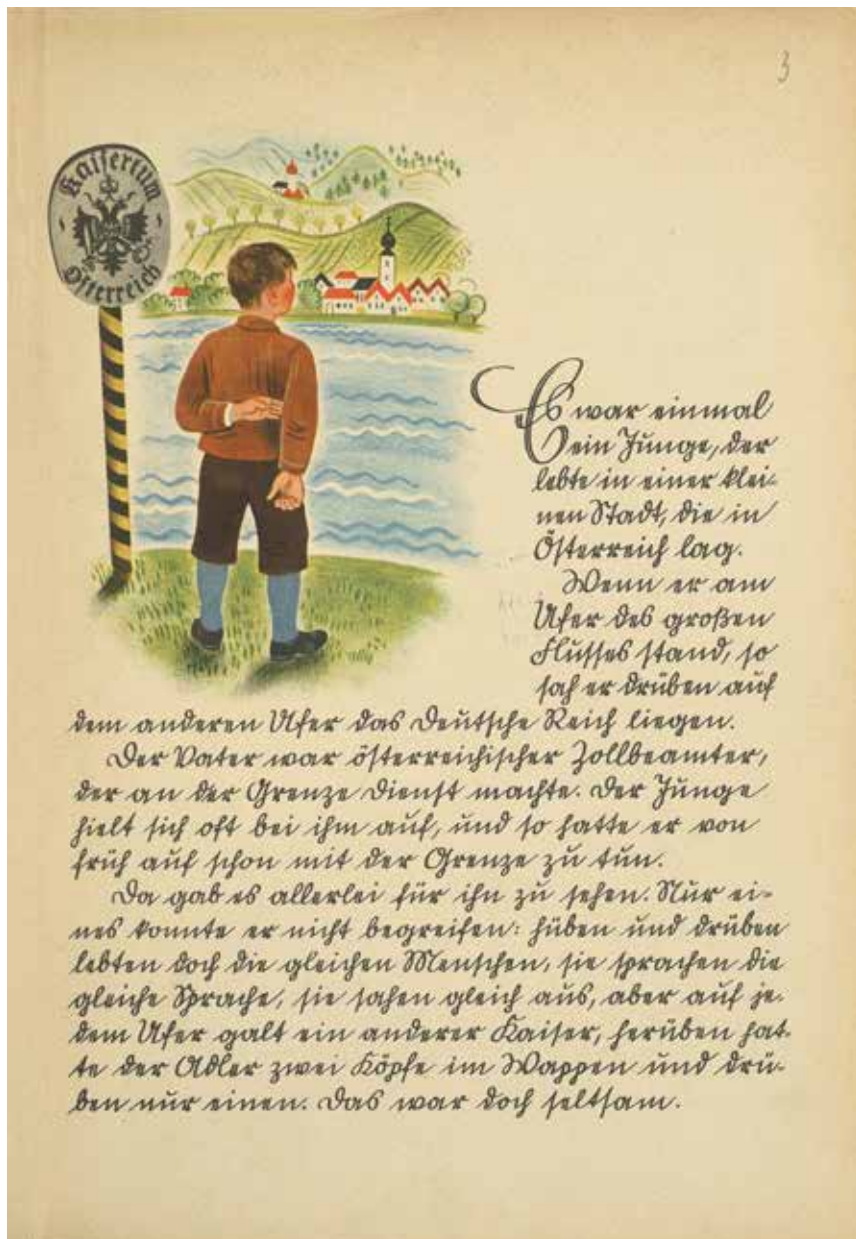 3
Kaisertum
Österreich
Es war einmal
ein Junge, der
lebte in einer klei-
nen Stadt, die in
Österreich lag.
Wenn er am
Ufer des großen
Flusses stand, so
sah er drüben auf
dem anderen Ufer das Deutsche Reich liegen.
Der Vater war österreichischer Zollbeamter,
der an der Grenze Dienst machte. Der Junge
hielt sich oft bei ihm auf, und so hatte er von
früh auf schon mit der Grenze zu tun.
Da gab es allerlei für ihn zu sehen. Nur ei-
nes konnte er nicht begreifen: hüben und drüben
lebten doch die gleichen Menschen, sie sprachen die
gleiche Sprache, sie sahen gleich aus, aber auf je-
dem Ufer galt ein anderer Kaiser, herüben hat-
te der Adler zwei Köpfe im Wappen und drü-
ben nur einen. Das war doch seltsam.